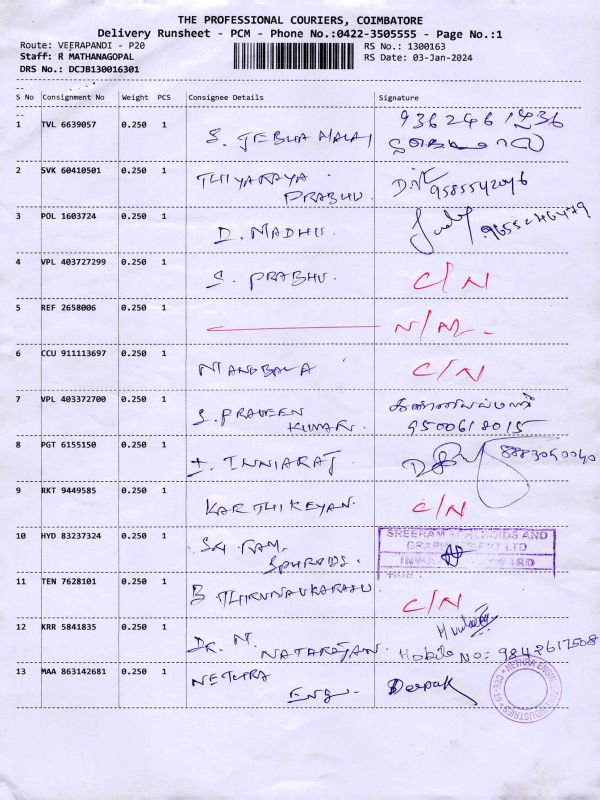 THE PROFESSIONAL COURIERS, COIMBATORE
Delivery Runsheet - PCM - Phone No.:0422-3505555 - Page No.:1
Route: VEERAPANDI - P20
RS No.: 1300163
Staff: R MATHANAGOPAL
RS Date: 03-Jan-2024
DRS No.: DCJB130016301
S No Consignment No Weight PCS Consignee Details Signature
1 TVL 6639057 0.250 1 S. JEBHA MALAJ
2 SVK 60410501 0.250 1 THIYAKAYA PRABHU. 9585542046
3 POL 1603724 0.250 1 D. MADHU. 9655246479
4 VPL 403727299 0.250 1 S. PRABHU. C/N
5 REF 2658006 0.250 1 N/M
6 CCU 911113697 0.250 1 MANOBALA C/N
7 VPL 403372700 0.250 1 S. PRAVEEN KUMAR. 9500618015
8 PGT 6155150 0.250 1 I. INNIARAJ 8883040040
9 RKT 9449585 0.250 1 KARTHIKEYAN. C/N
10 HYD 83237324 0.250 1 SRI RAM SPHROIDS. SREERAM SPHEROIDS AND
11 TEN 7628101 0.250 1 B THIRUNAVUKARASU C/N
12 KRR 5841835 0.250 1 DR. N. NATARAJAN. Mobile No: 9842617508
13 MAA 863142681 0.250 1 NETHRA ENG. Deepak